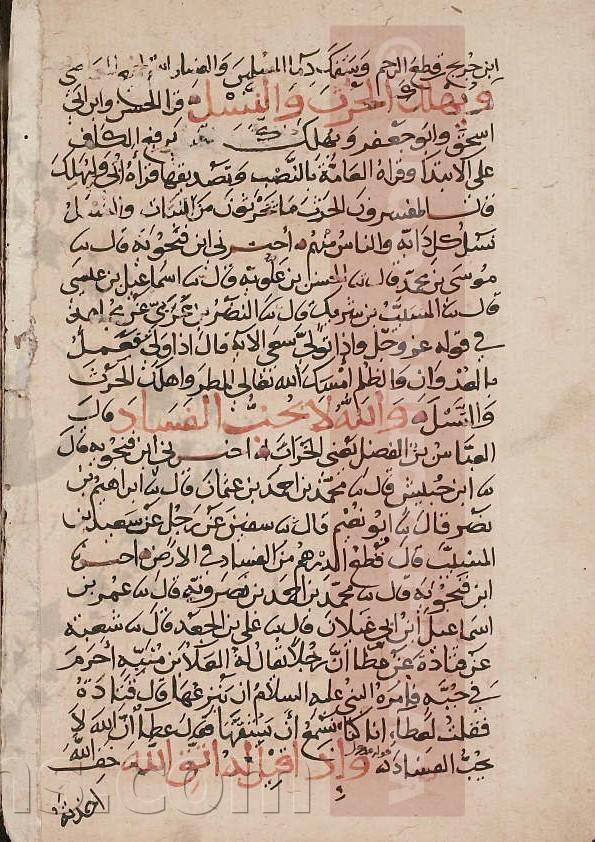 ابن جريج قطع الرحم ويسفك دما المسلمين والفساد
ويهلك الحرث والنسل قرا الحسن وابن ابي
اسحق وابو جعفر ويهلك برفع الكاف
على الابتدا وقراه العامة بالنصب وتصديقها قراة ابي وليهلك
قال المفسرون الحرث ما تحرثون من النبات والنسل
نسل كل دابه والناس منهم اخبرني ابن فنجويه قال نا
موسى بن محمد قال نا الحسن بن علويه قال نا اسماعيل بن عيسى
قال نا المسيب بن شريك قال نا النضر بن عربي عن مجاهد
في قوله عز وجل واذا تولى سعى الايه قال اذا ولي فعمل
بالعدوان والظلم امسك الله تعالى المطر واهلك الحرث
والنسل والله لا يحب الفساد قال
العباس بن الفضل يعني الخراب اخبرني ابن فنجويه قال
نا ابن حبيش قال نا محمد بن احمد بن عثمان قال نا ابراهيم بن
نصر قال نا ابو نعيم قال نا سفين عن رجل عن سعيد بن
المسيب قال قطع الدرهم من الفساد في الارض اخبرنا
ابن فنجويه قال نا محمد بن احمد بن نصرويه قال نا عمر بن
اسماعيل ابن ابي غيلان قال نا علي بن الجعد قال نا شعبة
عن قتادة عن عطا ان رجلا يقال له العلا بن منبه احرم
في جبه فامره النبي عليه السلام ان ينزعها قال قتادة
فقلت لعطا انا كنا نسمع ان يشقها فقال عطا ان الله لا
يحب الفساد واذا قيل له اتق الله خف الله
اخذته